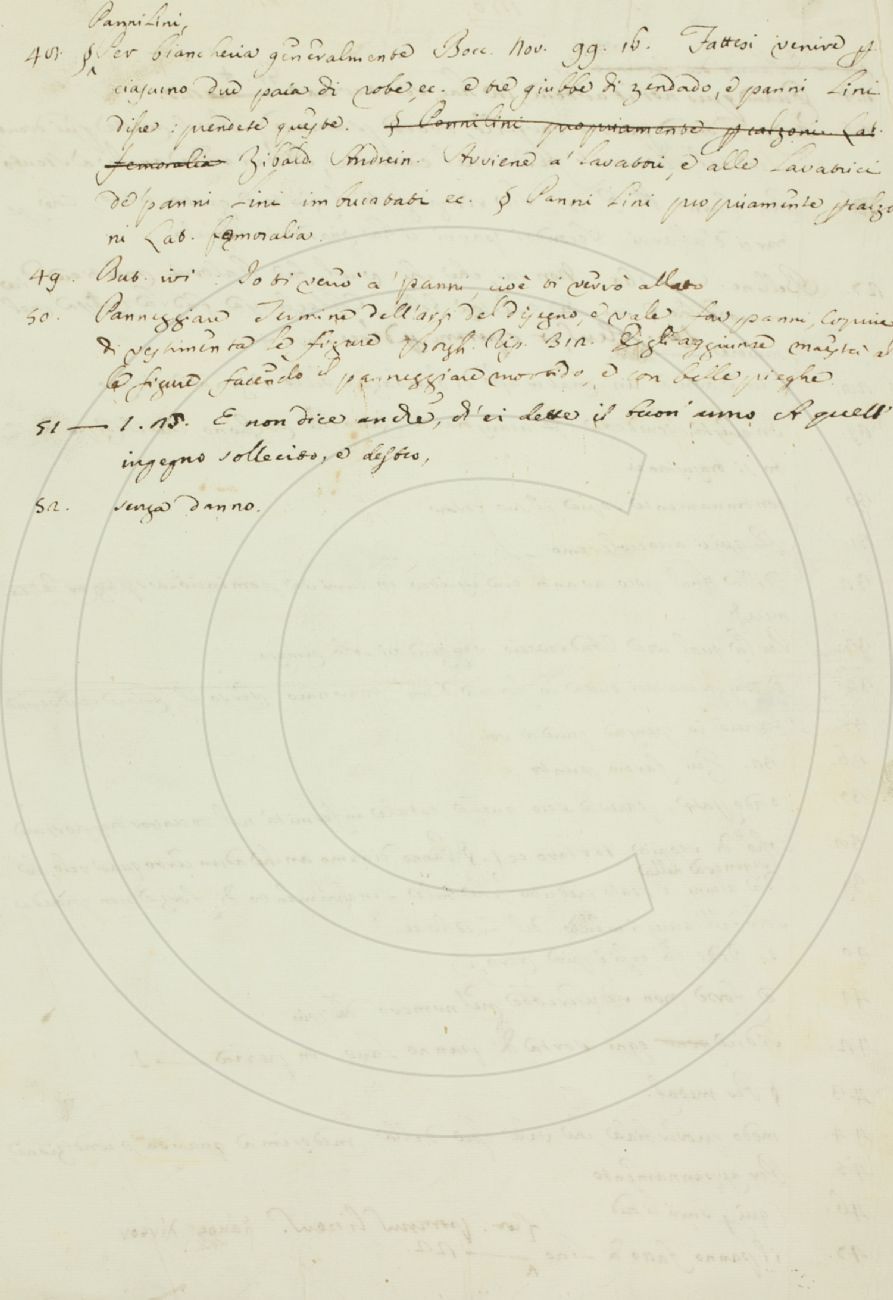 Panni Lini,
48. § Per biancheria generalmente Bocc. Nov. 99. 16. Fattesi venire p.
ciascuno due paia di robe ec. e tre giubbe di zendado, e panni Lini
disse: prendete queste. § Panni Lini propriamente p calzoni. Lat.
femoralia Zibald. Andrein. Avviene a' lavatori, e alle lavatrici
de' panni Lini imbucatati ec. § Panni Lini propriamente p calzo
ni Lat. femoralia.
49. But. ivi. Io ti verrò a' panni, cioè ti verrò allato
50. Panneggiare Termine dell'arte del disegno, e vale far panni, coprire
di vestimenta le figure Borgh. Rip. 312. Egli aggiunse maestà al
le figure facendo il panneggiare morbido, e con belle pieghe.
51 — 1. 15. E non dice anche, ch'ei dette il buon anno A quell'
ingegno sollecito, e destro,
52. senza danno.